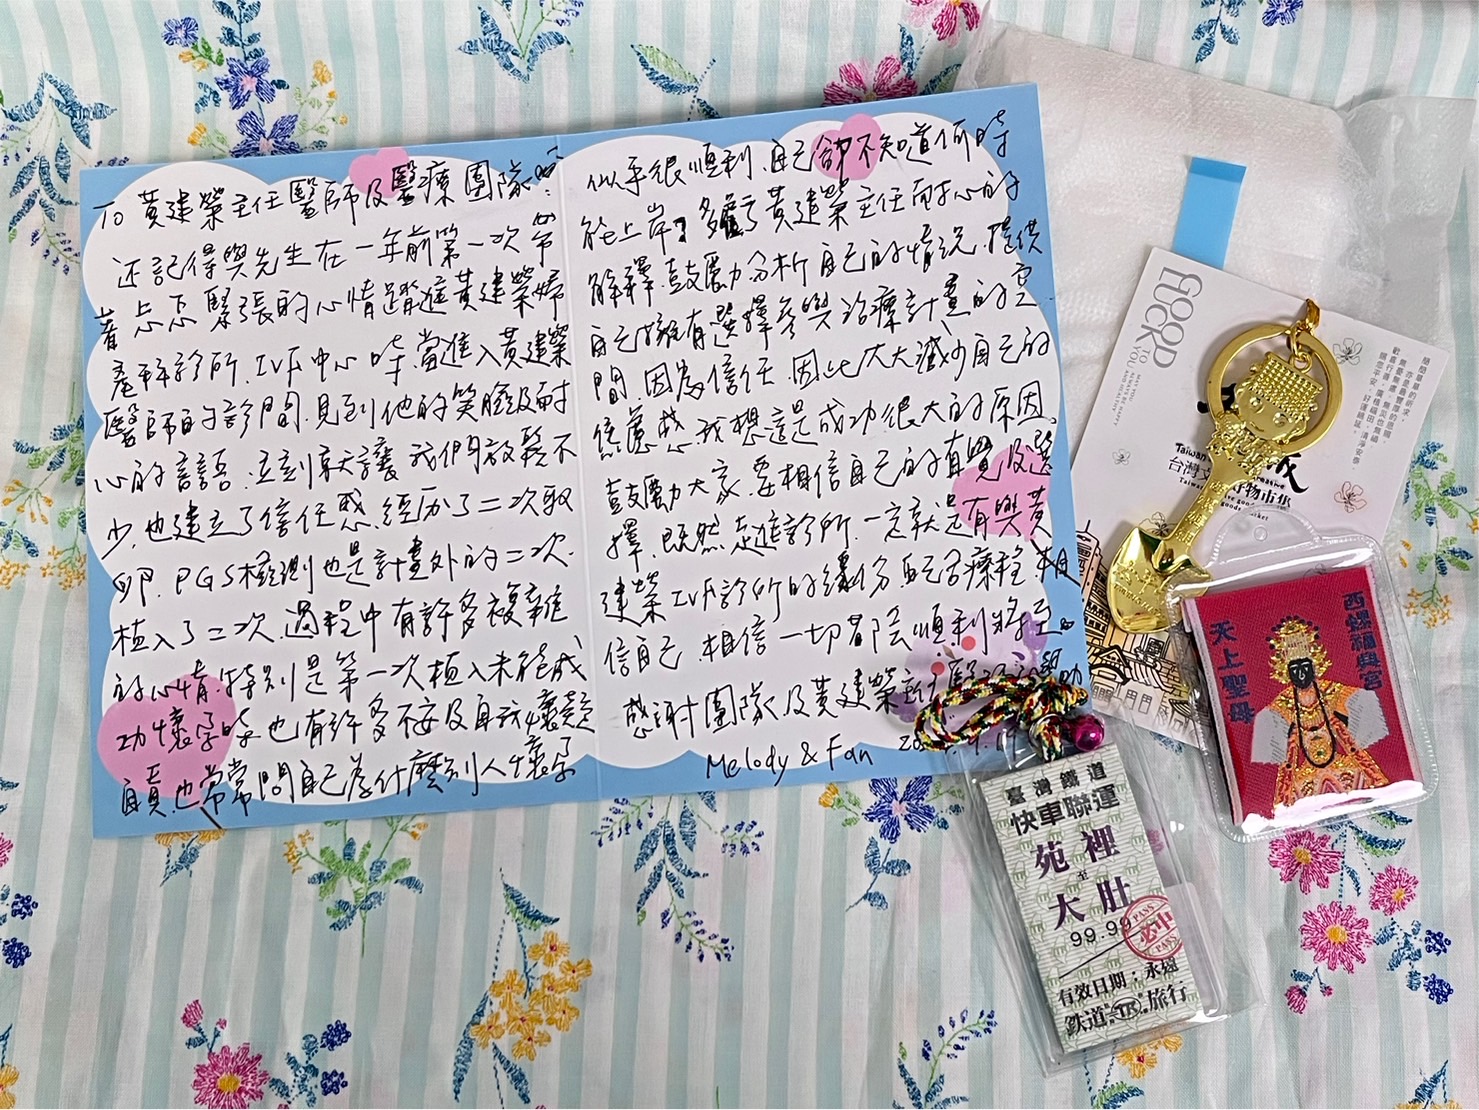 To 黃建榮主任醫師及醫療團隊
還記得與先生在一年前第一次帶
著忐忑緊張的心情踏進黃建榮婦
產科診所.IVF中心時.當進入黃建榮
醫師的診間.見到他的笑臉及耐
心的言語.立刻就讓我們放鬆不
少.也建立了信任感.經歷了二次取
卵.PGS檢測也是計畫外的二次.
植入了二次.過程中有許多複雜
的心情.特別是第一次植入未能成
功懷孕時.也有許多不安及自我懷疑
自責.也常常問自己為什麼別人懷孕
似乎很順利.自己卻不知道何時
能上岸?多虧了黃建榮主任耐心的
解釋.鼓勵分析自己的情況.提供
自己擁有選擇參與治療計畫的空
間.因為信任.因此大大減少自己的
焦慮感.我想這是成功很大的原因.
鼓勵大家.要相信自己的直覺及選
擇.既然走進診所.一定就是有與黃
建榮IVF診所的緣份.配合療程.相
信自己.相信一切都會順利將至。
感謝團隊及黃建榮主任醫
Melody & Fan
GOOD
LUCK
TO
YOU
MAY YOU
ALWAYS BE HAPPY
AND HEALTHY
簡簡單單的祈求
亦是最豐厚的恩賜
無憂無慮、無災也無禍
歡喜行善、廣植福田、清淨安泰
願您平安、好運綿延。
台灣
物市集
西螺福興宮
天上聖母
臺灣鐵道
快車聯運
苑裡
至
大肚
99.99
PASS
必中
PASS
有效日期:永遠
鉄道 旅行